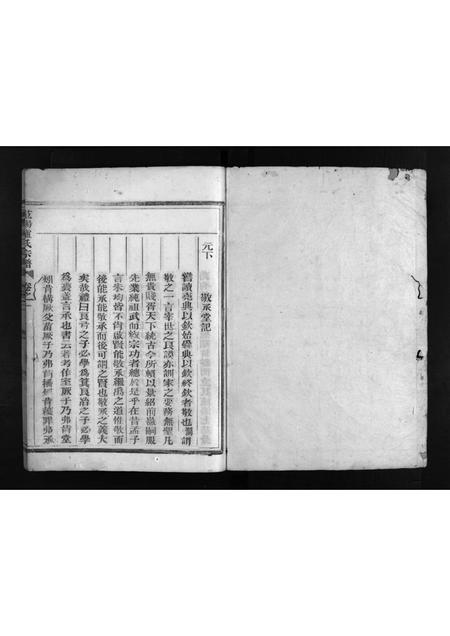 元下
敬承堂記
嘗讀堯典以欽始舜典以欽終欽者敬也竊謂
敬之一言寧世之良謨亦訓家之要務無聖凡
無貴賤胥天下統古今所賴以景紹前徽嗣服
先業純祖武而綏宗功者總於是乎在昔孟子
言朱均皆不肖啟賢能敬承繼禹之道惟敬而
後能承能敬承而後可謂之賢也敬承之義大
矣哉禮曰良弓之子必學為箕良冶之子必學
為裘蓋言承也書云若考作室厥子乃弗肯堂
矧肯構厥父菑厥子乃弗肯播矧肯穫罪弗承
氏宗譜
卷之